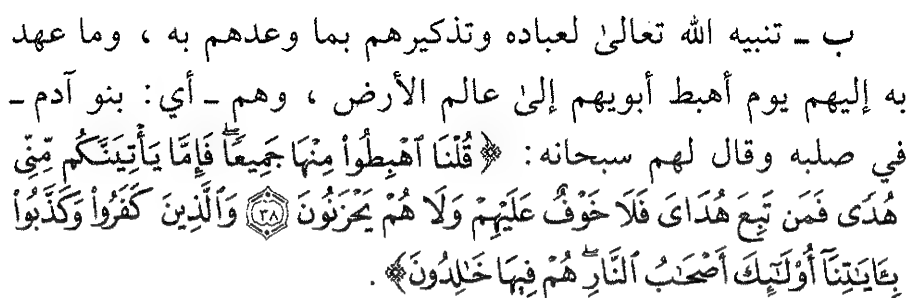 ب ـ تنبيه الله تعالىٰ لعباده وتذكيرهم بما وعدهم به ، وما عهد
به إليهم يوم أهبط أبويهم إلىٰ عالم الأرض ، وهم ـ أي: بنو آدم ـ
في صلبه وقال لهم سبحانه: ﴿قُلْنَا ٱهْبِطُوا۟ مِنْهَا جَمِيعًاۖ فَإِمَّا يَأْتِيَنَّكُم مِّنِّى
هُدًى فَمَن تَبِعَ هُدَاىَ فَلَا خَوْفٌ عَلَيْهِمْ وَلَا هُمْ يَحْزَنُونَ ٣٨ وَٱلَّذِينَ كَفَرُوا۟ وَكَذَّبُوا۟
بِـَٔايَـٰتِنَآ أُو۟لَـٰٓئِكَ أَصْحَـٰبُ ٱلنَّارِۖ هُمْ فِيهَا خَـٰلِدُونَ﴾ .